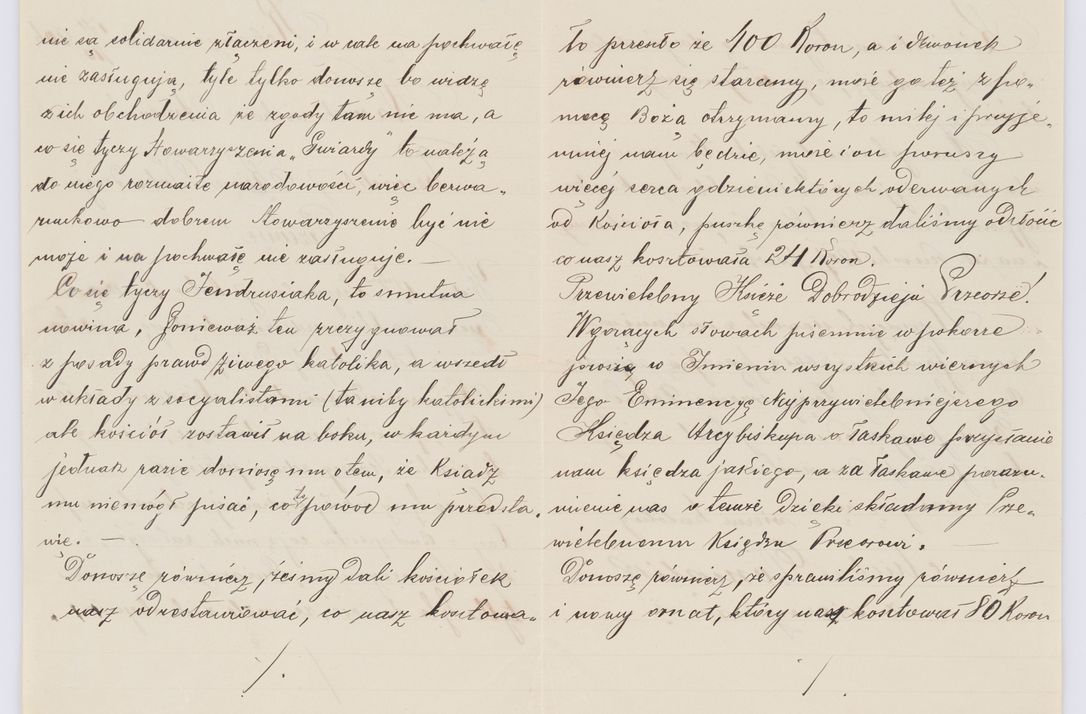 nie są solidarnie złączeni, i w cale na pochwałę
nie zasługują, tyle tylko donoszę bo widzę
z ich obchodzenia że zgody tam nie ma, a
co się tyczy Stowarzyszenia „Gwiardy" to należą
do niego rozmaite narodowości, więc berwa„
runkowo dobrem Stowarzyszenie być nie
może i na pochwałę nie zasługuje. —
Co się tyczy Jendrusiaka, to smutna
nowina, Ponieważ ten zrezygnował
z posady prawdziwego katolika, a wszedł
w układy z socyalistami (ta niby katolickimi)
ale kościół zostawił na boku, w każdym
jednak razie doniosę mu otem, że Ksiadz
mu niemógł pisać, co to powód mu przedsta„
wię. —
Donoszę również, żeśmy dali kościołek
nasz odrestaurować, co nasz kosztowa„
/.
ło przeszło że 400 Koron, a i dzwonek
również się staramy, może go też z po„
mocą Bożą otrzymamy, to milej i przyje„
mniej nam będzie, może i on poruszy
więcej serca gdzieniektórych oderwanych
od Kościoła, puszkę również daliśmy odzłocić
co nasz kosztowała 24 Koron.
Przewielebny Księże Dobrodzieju Przeorze!
W gorących słowach piśmnie w pokorze
proszę w Imieniu wszystkich wiernych
Jego Eminencyę Najprzywielebniejszego
Księdza Arcybiskupa o łaskawe przysłanie
nam księdza jakiego, a za łaskawe porozu„
mienie nas o temże Dzięki składamy Prze„
wielebnemu Księdzu Przeorowi. —
Donoszę również, że sprawiliśmy również
i nowy ornat, który nasz kosztował 80 Koron
/.